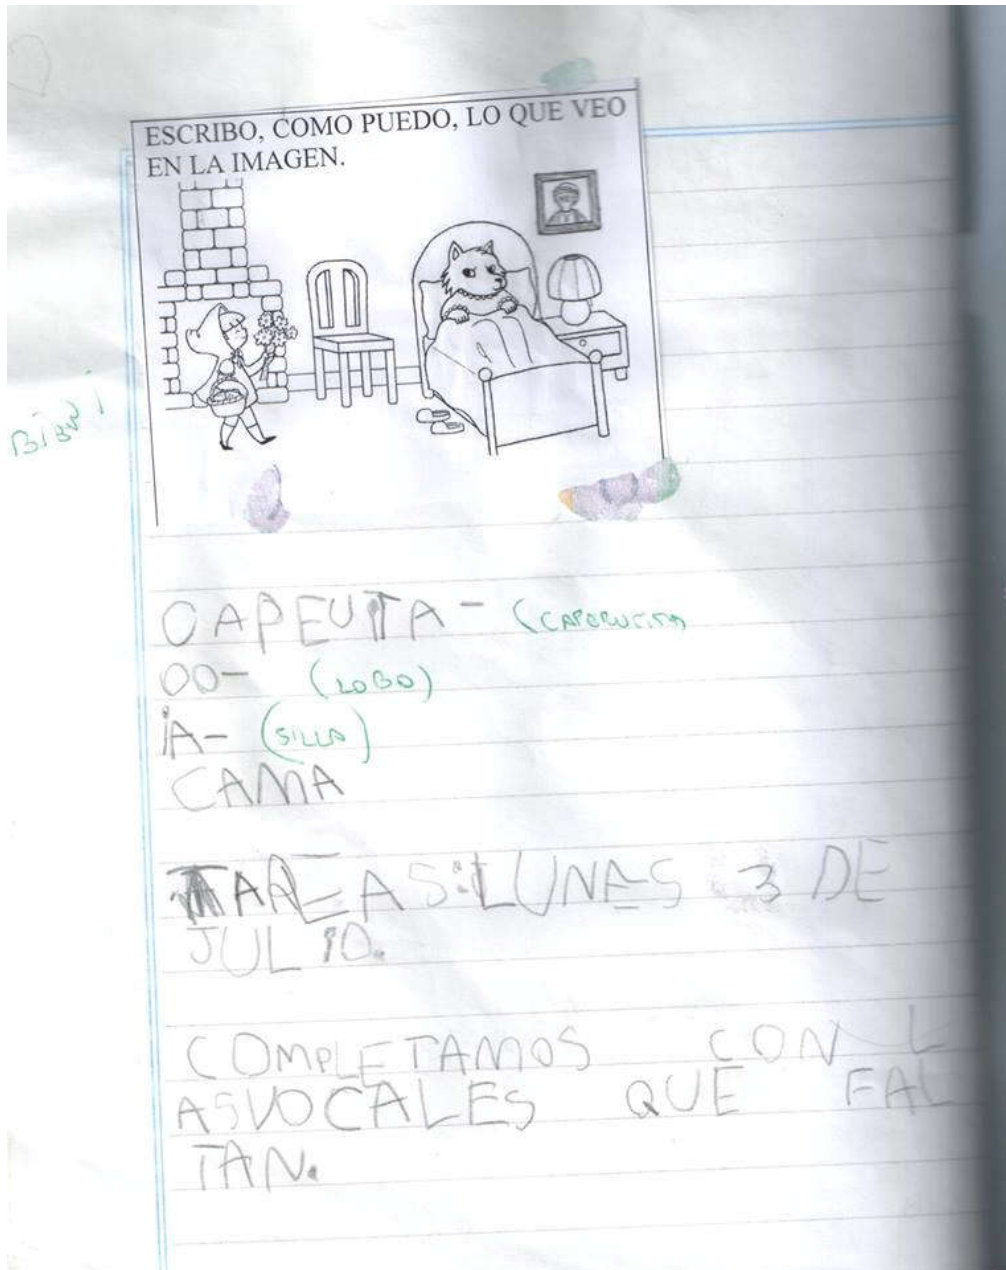 ESCRIBO, COMO PUEDO, LO QUE VEO
EN LA IMAGEN.
Bien!
CAPEUITA - (CAPERUCITA
OO- (LOBO)
iA- (SILLA)
CAMA
TAREAS: LUNES 3 DE
JULIO.
COMPLETAMOS CON L
ASVOCALES QUE FAL
TAN.